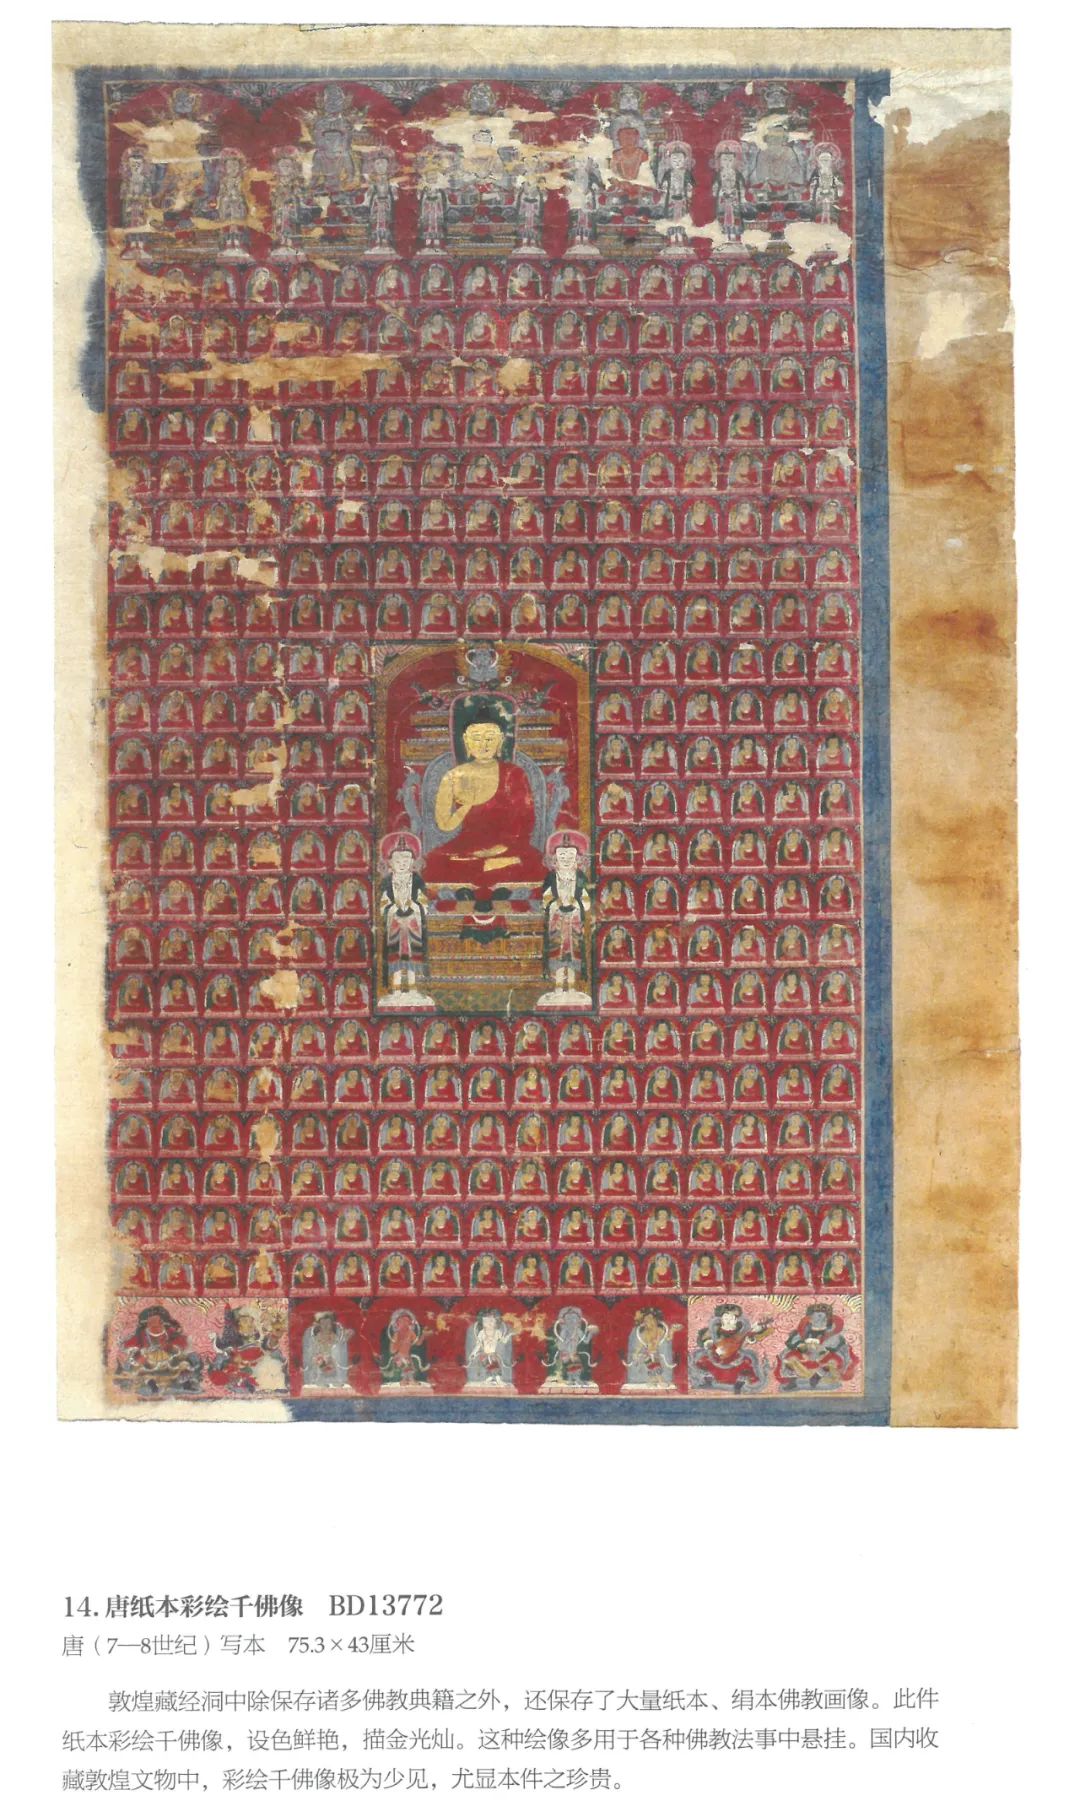 14.唐纸本彩绘千佛像 BD13772
唐（7—8世纪）写本 75.3×43厘米
敦煌藏经洞中除保存诸多佛教典籍之外，还保存了大量纸本、绢本佛教画像。此件
纸本彩绘千佛像，设色鲜艳，描金光灿。这种绘像多用于各种佛教法事中悬挂。国内收
藏敦煌文物中，彩绘千佛像极为少见，尤显本件之珍贵。